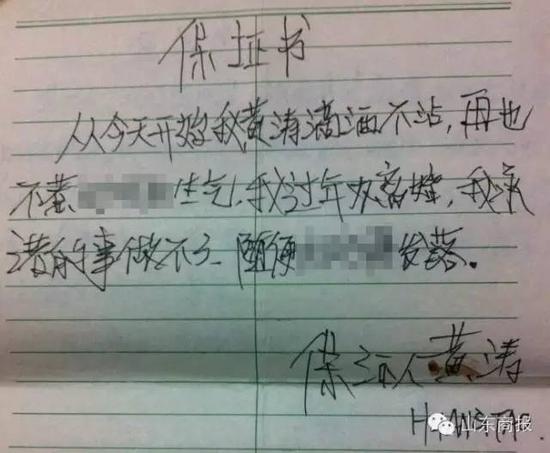 保证书
从今天开始我黄涛滴酒不沾，再也
不惹生气，我过年办离婚，我承
诺的事做不了、随便发落。
保证人黄涛
山东商报